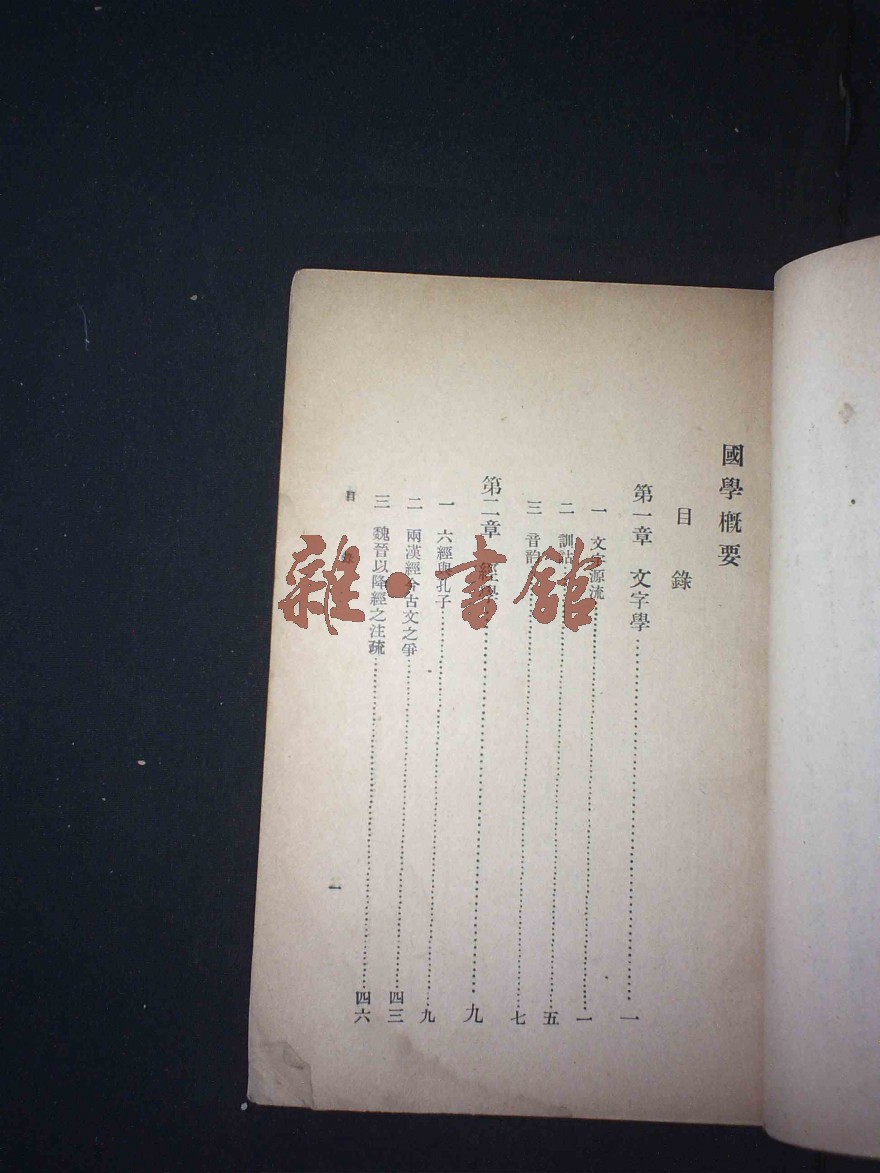 國學概要
目錄
第一章 文字學……一
一 文字源流……一
二 訓詁……五
三 音韵……七
第二章 經學……九
一 六經與孔子……九
二 兩漢經今古文之爭……四三
三 魏晉以降經之注疏……四六
目 錄
一
雜·書館